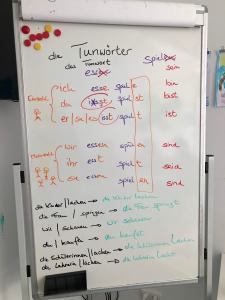 die Tunwörter
das Tunwort
essen spielen sein
Einzahl ich esse spiele bin
du isst spielst bist
er/sie/es isst spielt ist
Mehrzahl wir essen spielen sind
ihr esst spielt seid
sie essen spielen sind
die Kinder/lachen → die Kinder lachen
die Frau / springen → die Frau springt
wir / schreiben → wir schreiben
du / kaufen → du kaufst
die Schülerinnen/lachen → die Schülerinnen lachen
die Lehrerin/lachen → die Lehrerin lacht